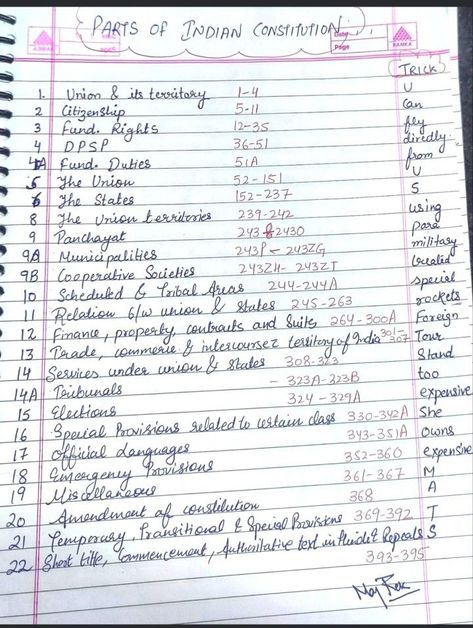 PARTS OF INDIAN CONSTITUTION
TRICK
1. Union & its territory 1-4 U
2 Citizenship 5-11 Can
3 Fund. Rights 12-35 fly
4 DPSP 36-51 directly
4A Fund. Duties 51A from
5 The Union 52-151 U
6 The States 152-237 S
8 The Union territories 239-242 using
9 Panchayat 243 243O Para
9A Municipalities 243P - 243ZG military
9B Cooperative Societies 243ZH - 243ZT located
10 Scheduled & Tribal Areas 244-244A special
11 Relation b/w union & states 245-263 rockets
12 Finance, property contracts and Suits 264-300A Foreign
13 Trade, commerie & intercourse territory of India 301-307 Tour
14 Services under union & states 308-323 Stand
14A Tribunals - 323A-323B too
15 Elections 324-329A expensive
16 Special Provisions related to certain class 330-342A She
17 Official Languages 343-351A Owns
18 Emergency Provisions 352-360 expensive
19 Miscellaneous 361-367 M
20 Amendment of constitution 368 A
21 Temporary, Transitional & Special Provisions 369-392 T
22 Short title, Commencement, Authoritative text in & Repeals S
393-395